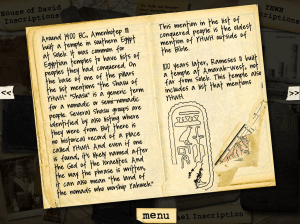 House of David
Inscriptions
YHWH
Inscriptions
Around 1400 BC, Amenhotep III
built a temple in southern Egypt
at Soleb. It was common for
Egyptian temples to have lists of
peoples they had conquered. On
the base of one of the pillars
the list mentions "the Shasu of
YHWH." "Shasu" is a generic term
for a nomadic or semi-nomadic
people. Several Shasu groups are
identified by also listing where
they were from. But there is
no historical record of a place
called YHWH. And even if one
is found, it's likely named after
the God of the Israelites. And
the way the phrase is written,
it can also mean "the land of
the nomads who worship Yahweh."
This mention in the list of
conquered people is the oldest
mention of YHWH outside of
the Bible.
100 years later, Rameses II built
a temple at Amarah-West, not
far from Soleb. This temple also
includes a list that mentions
YHWH.
<<
>>
menu
el Inscription